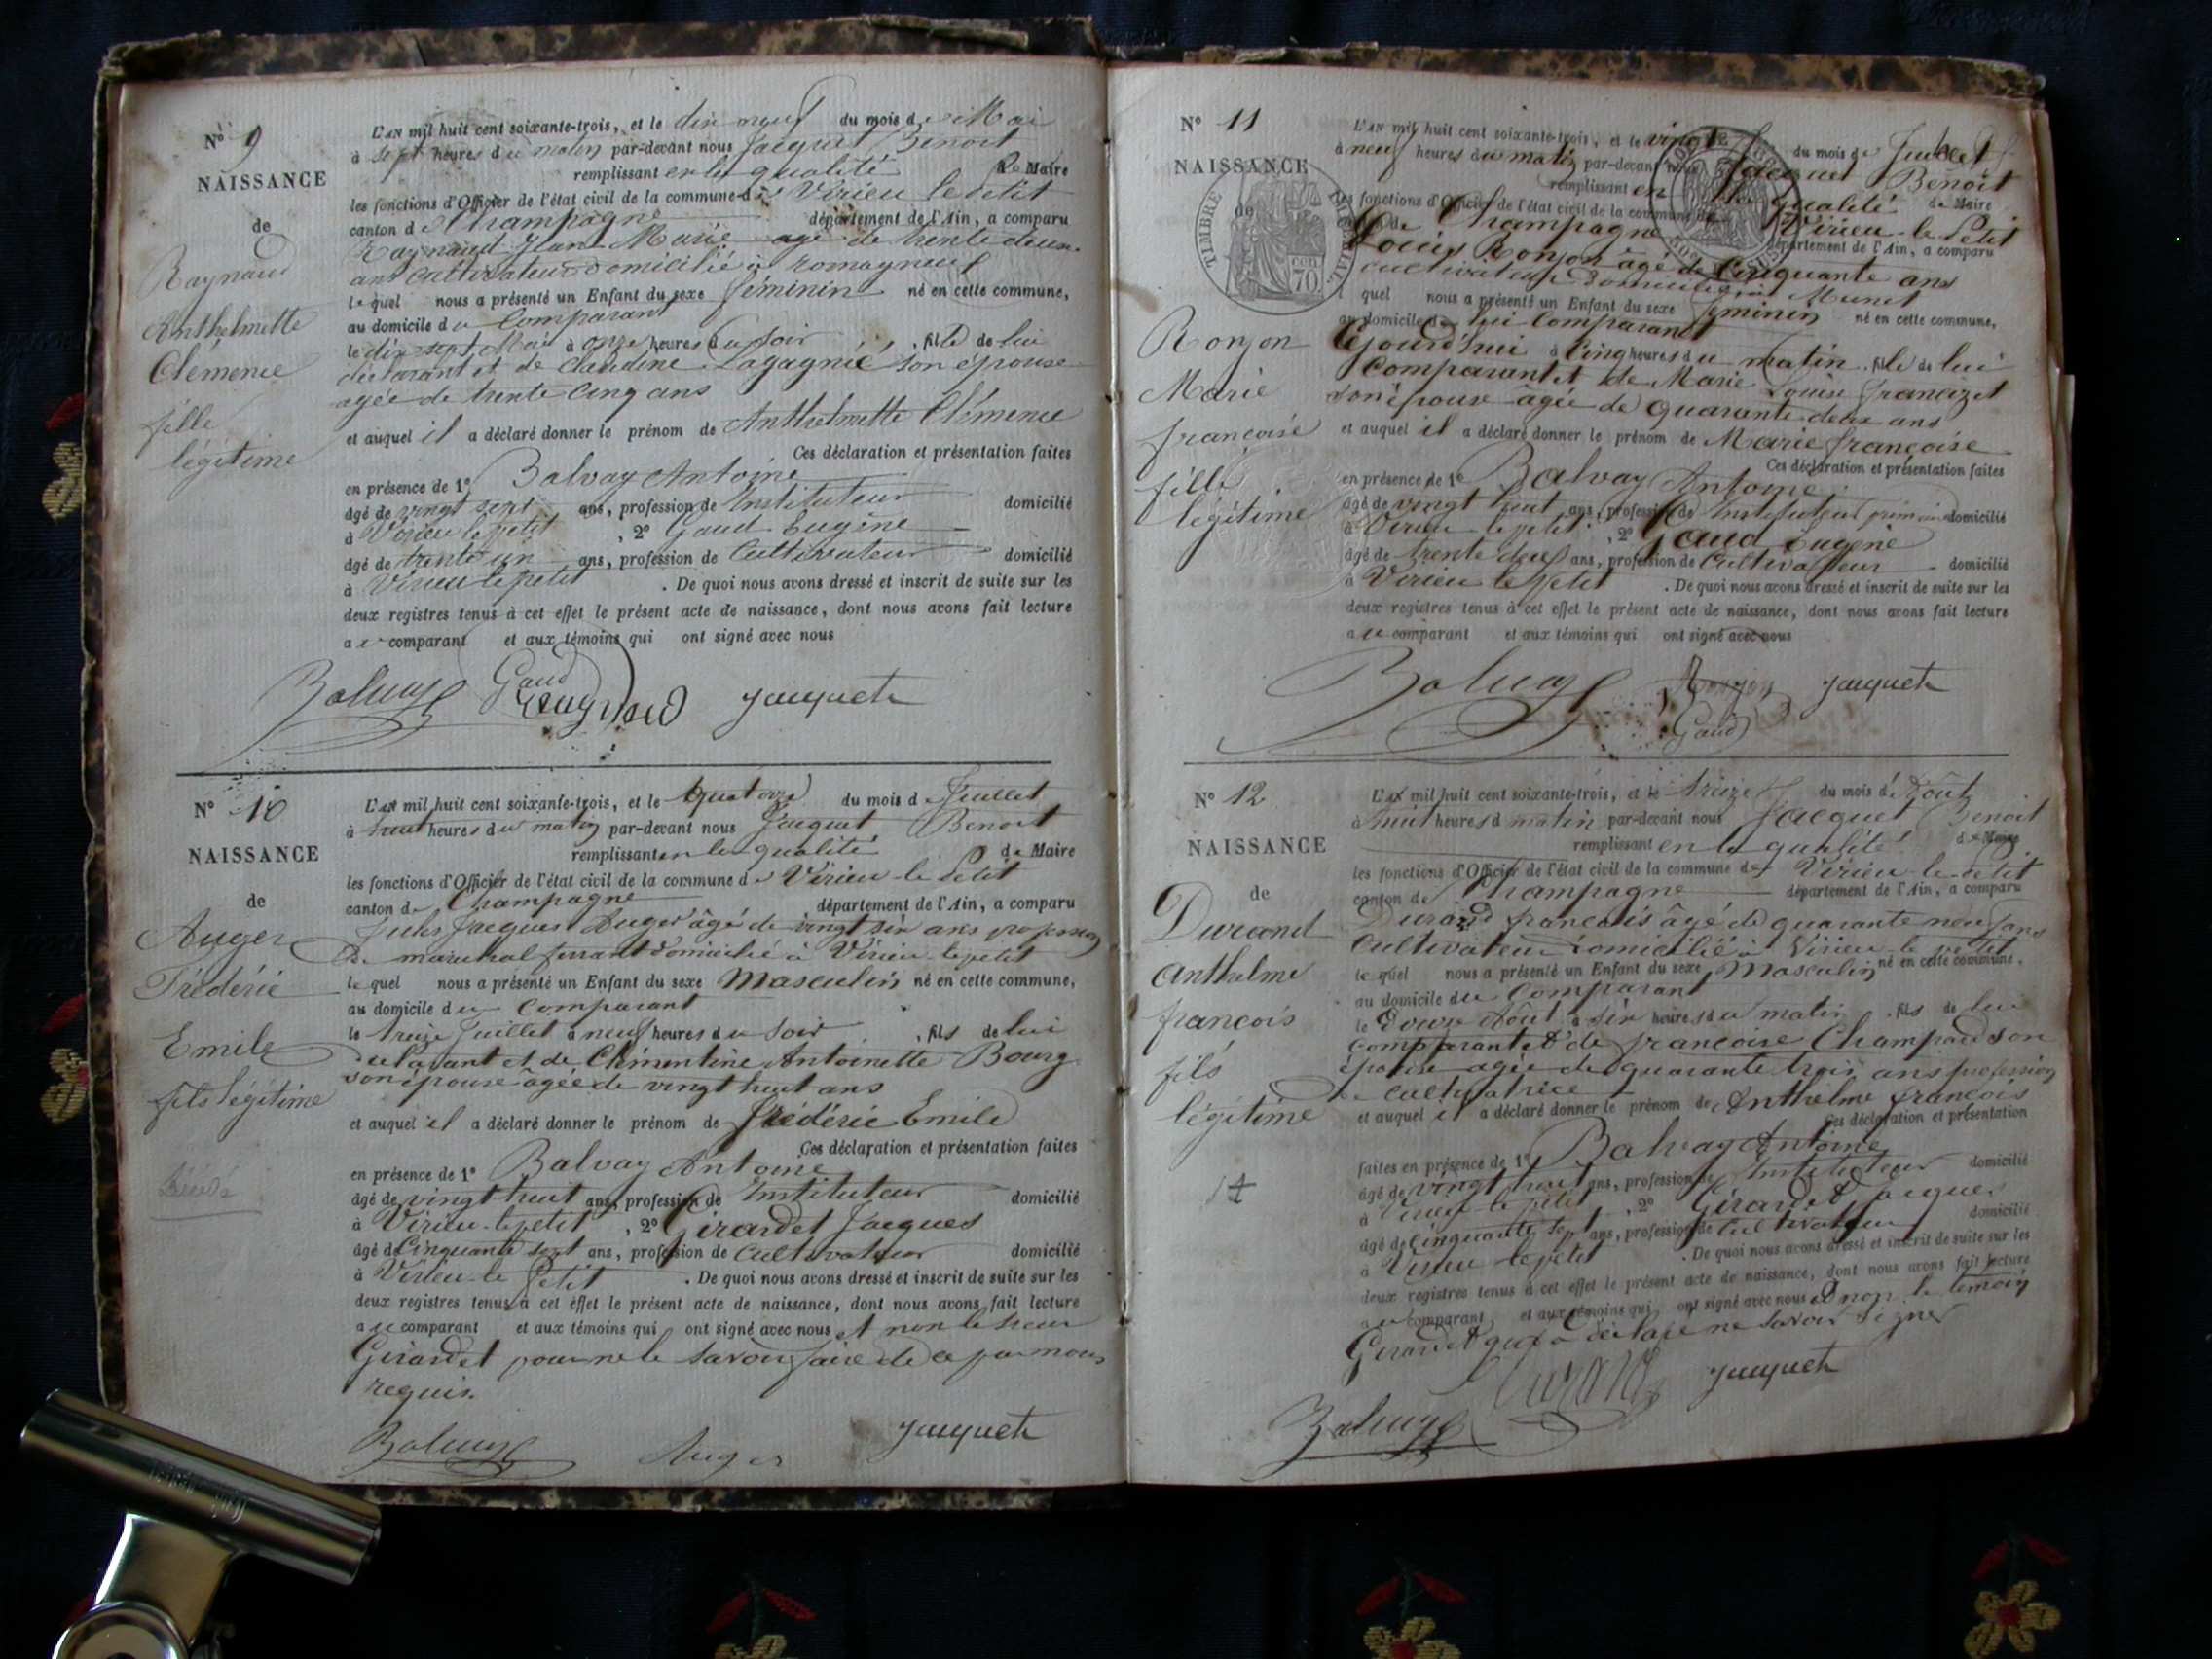 N° 9
NAISSANCE
de
Raynaud
Anthelmette
Clémence
fille
légitime
L'AN mil huit cent soixante-trois, et le dix neuf du mois de Mai
à sept heures du matin par-devant nous Jacquet Benoit
remplissant en la qualité de Maire
les fonctions d'Officier de l'état civil de la commune de Virieu le Petit
canton de Champagne département de l'Ain, a comparu
Raynaud Jean Marie agé de trente deux
ans cultivateur domicilié à romagneux
lequel nous a présenté un Enfant du sexe féminin né en cette commune,
au domicile du Comparant
le dix sept Mai à onze heures du soir, fille de lui
déclarant et de Claudine Lagagnié son épouse
agée de trente cinq ans
et auquel il a déclaré donner le prénom de Anthelmette Clémence
Ces déclaration et présentation faites
en présence de 1° Balvay Antoine
âgé de vingt sept ans, profession de Instituteur domicilié
à Virieu le petit, 2° Gaud Eugène
âgé de trente un ans, profession de Cultivateur domicilié
à Virieu le petit. De quoi nous avons dressé et inscrit de suite sur les
deux registres tenus à cet effet le présent acte de naissance, dont nous avons fait lecture
au comparant et aux témoins qui ont signé avec nous
Balvay Gaud Jacquet
Raynaud
N° 10
NAISSANCE
de
Auger
Frédéric
Emile
fils légitime
L'AN mil huit cent soixante-trois, et le quatorze du mois de Juillet
à huit heures du matin par-devant nous Jacquet Benoit
remplissant en la qualité de Maire
les fonctions d'Officier de l'état civil de la commune de Virieu le Petit
canton de Champagne département de l'Ain, a comparu
Jules Jacques Auger âgé de vingt six ans profession
de maréchal ferrant domicilié à Virieu le petit
lequel nous a présenté un Enfant du sexe Masculin né en cette commune,
au domicile du Comparant
le treize Juillet à neuf heures du soir, fils de lui
déclarant et de Clémentine Antoinette Bourg
son épouse âgée de vingt huit ans
et auquel il a déclaré donner le prénom de frédéric Emile
Ces déclaration et présentation faites
en présence de 1° Balvay Antoine
âgé de vingt huit ans, profession de Instituteur domicilié
à Virieu le petit, 2° Girardet Jacques
âgé de Cinquante sept ans, profession de Cultivateur domicilié
à Virieu le Petit. De quoi nous avons dressé et inscrit de suite sur les
deux registres tenus à cet effet le présent acte de naissance, dont nous avons fait lecture
au comparant et aux témoins qui ont signé avec nous et non le sieur
Girardet pour ne le savoir faire de ce par nous
requis.
Balvay Auger Jacquet
N° 11
NAISSANCE
de
TIMBRE IMPERIAL
70
Ronjon
Marie
françoise
fille
légitime
L'AN mil huit cent soixante-trois, et le vingt du mois de Juillet
à neuf heures du matin par-devant nous Jacquet Benoit
remplissant en la qualité de Maire
les fonctions d'Officier de l'état civil de la commune de Virieu le Petit
canton de Champagne département de l'Ain, a comparu
Louis Ronjon âgé de Cinquante ans
cultivateur domicilié à Munet
lequel nous a présenté un Enfant du sexe féminin né en cette commune,
au domicile de lui Comparant
Cejourd'hui à Cinq heures du matin, fille de lui
Comparant et de Marie Louise Francizet
son épouse âgée de quarante deux ans
et auquel il a déclaré donner le prénom de Marie françoise
Ces déclaration et présentation faites
en présence de 1° Balvay Antoine
âgé de vingt huit ans, profession de Instituteur primaire domicilié
à Virieu le petit, 2° Gaud Eugène
âgé de trente deux ans, profession de Cultivateur domicilié
à Virieu le Petit. De quoi nous avons dressé et inscrit de suite sur les
deux registres tenus à cet effet le présent acte de naissance, dont nous avons fait lecture
au comparant et aux témoins qui ont signé avec nous
Balvay Ronjon Jacquet
Gaud
N° 12
NAISSANCE
de
Durand
Anthelme
francois
fils
légitime
14
L'AN mil huit cent soixante-trois, et le treize du mois d'Août
à huit heures d matin par-devant nous Jacquet Benoit
remplissant en la qualité de Maire
les fonctions d'Officier de l'état civil de la commune de Virieu le Petit
canton de Champagne département de l'Ain, a comparu
Durand francois âgé de quarante neuf ans
Cultivateur domicilié à Virieu le petit
lequel nous a présenté un Enfant du sexe Masculin né en cette commune,
au domicile du Comparant
le Douze Août à six heures du matin, fils de lui
comparant et de francoise Champaud son
épouse agée de quarante trois ans profession
de cultivatrice
et auquel il a déclaré donner le prénom de Anthelme francois
Ces déclaration et présentation
faites en présence de 1° Balvay Antoine
âgé de vingt huit ans, profession de Instituteur domicilié
à Virieu le petit, 2° Girardet Jacques
âgé de Cinquante sept ans, profession de Cultivateur domicilié
à Virieu le petit. De quoi nous avons dressé et inscrit de suite sur les
deux registres tenus à cet effet le présent acte de naissance, dont nous avons fait lecture
au comparant et aux témoins qui ont signé avec nous et non le témoin
Girardet qui a déclaré ne savoir signer
Durand Jacquet
Balvay